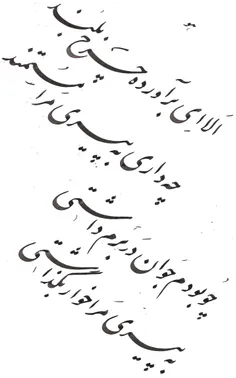 الا ای برآورده چرخ بلند
چه داری به پیری مرا مستمند
چو بودم جوان در برم داشتی
به پیری مرا خوار بگذاشتی